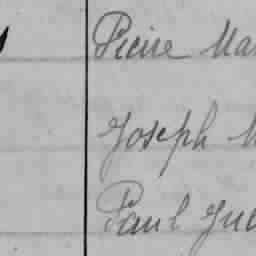 Pierre Ma
Joseph M
Paul Jul